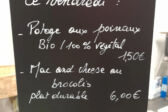 Ce vendredi :
- Potage aux poireaux
Bio / 100% végétal
1,50€
- Mac and cheese au
brocolis
plat durable 6,00€